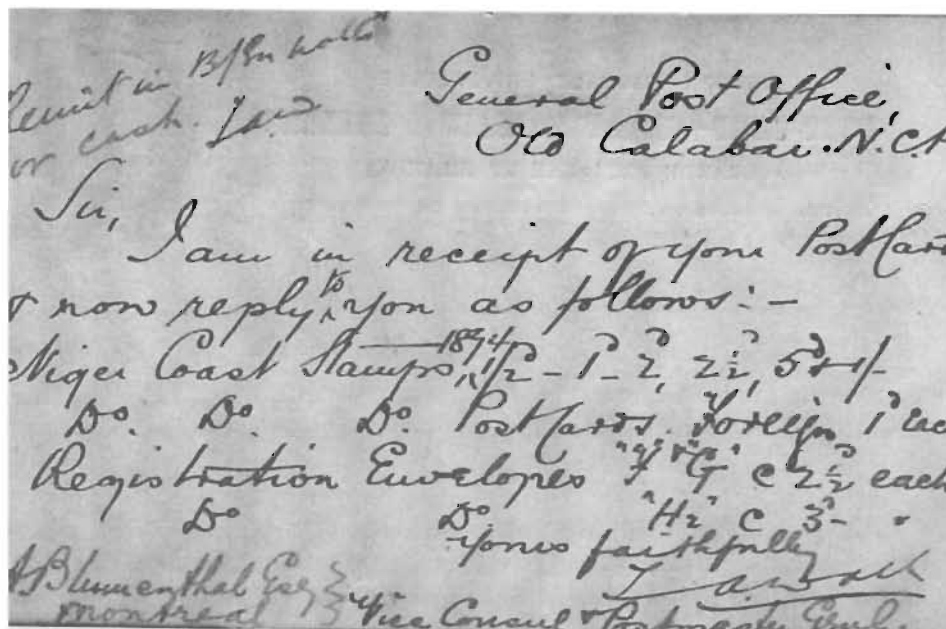 Remit in B/En notes
or cash.
General Post Office,
Old Calabar. N.C.P
Sir,
I am in receipt of your PostCard
& now reply to you as follows: -
Niger Coast Stamps, 1894 1/2d - 1d - 2d, 2 1/2d, 5d & 1/-
Do. Do. Do. PostCards. "Foreign" 1d each
Registration Envelopes "F" & "G" @ 2 1/2d each
Do Do. "H2" @ 3d - "
Yours faithfully
A Blumenthal Esq
Montreal
Vice Consul & Postmaster Genl.